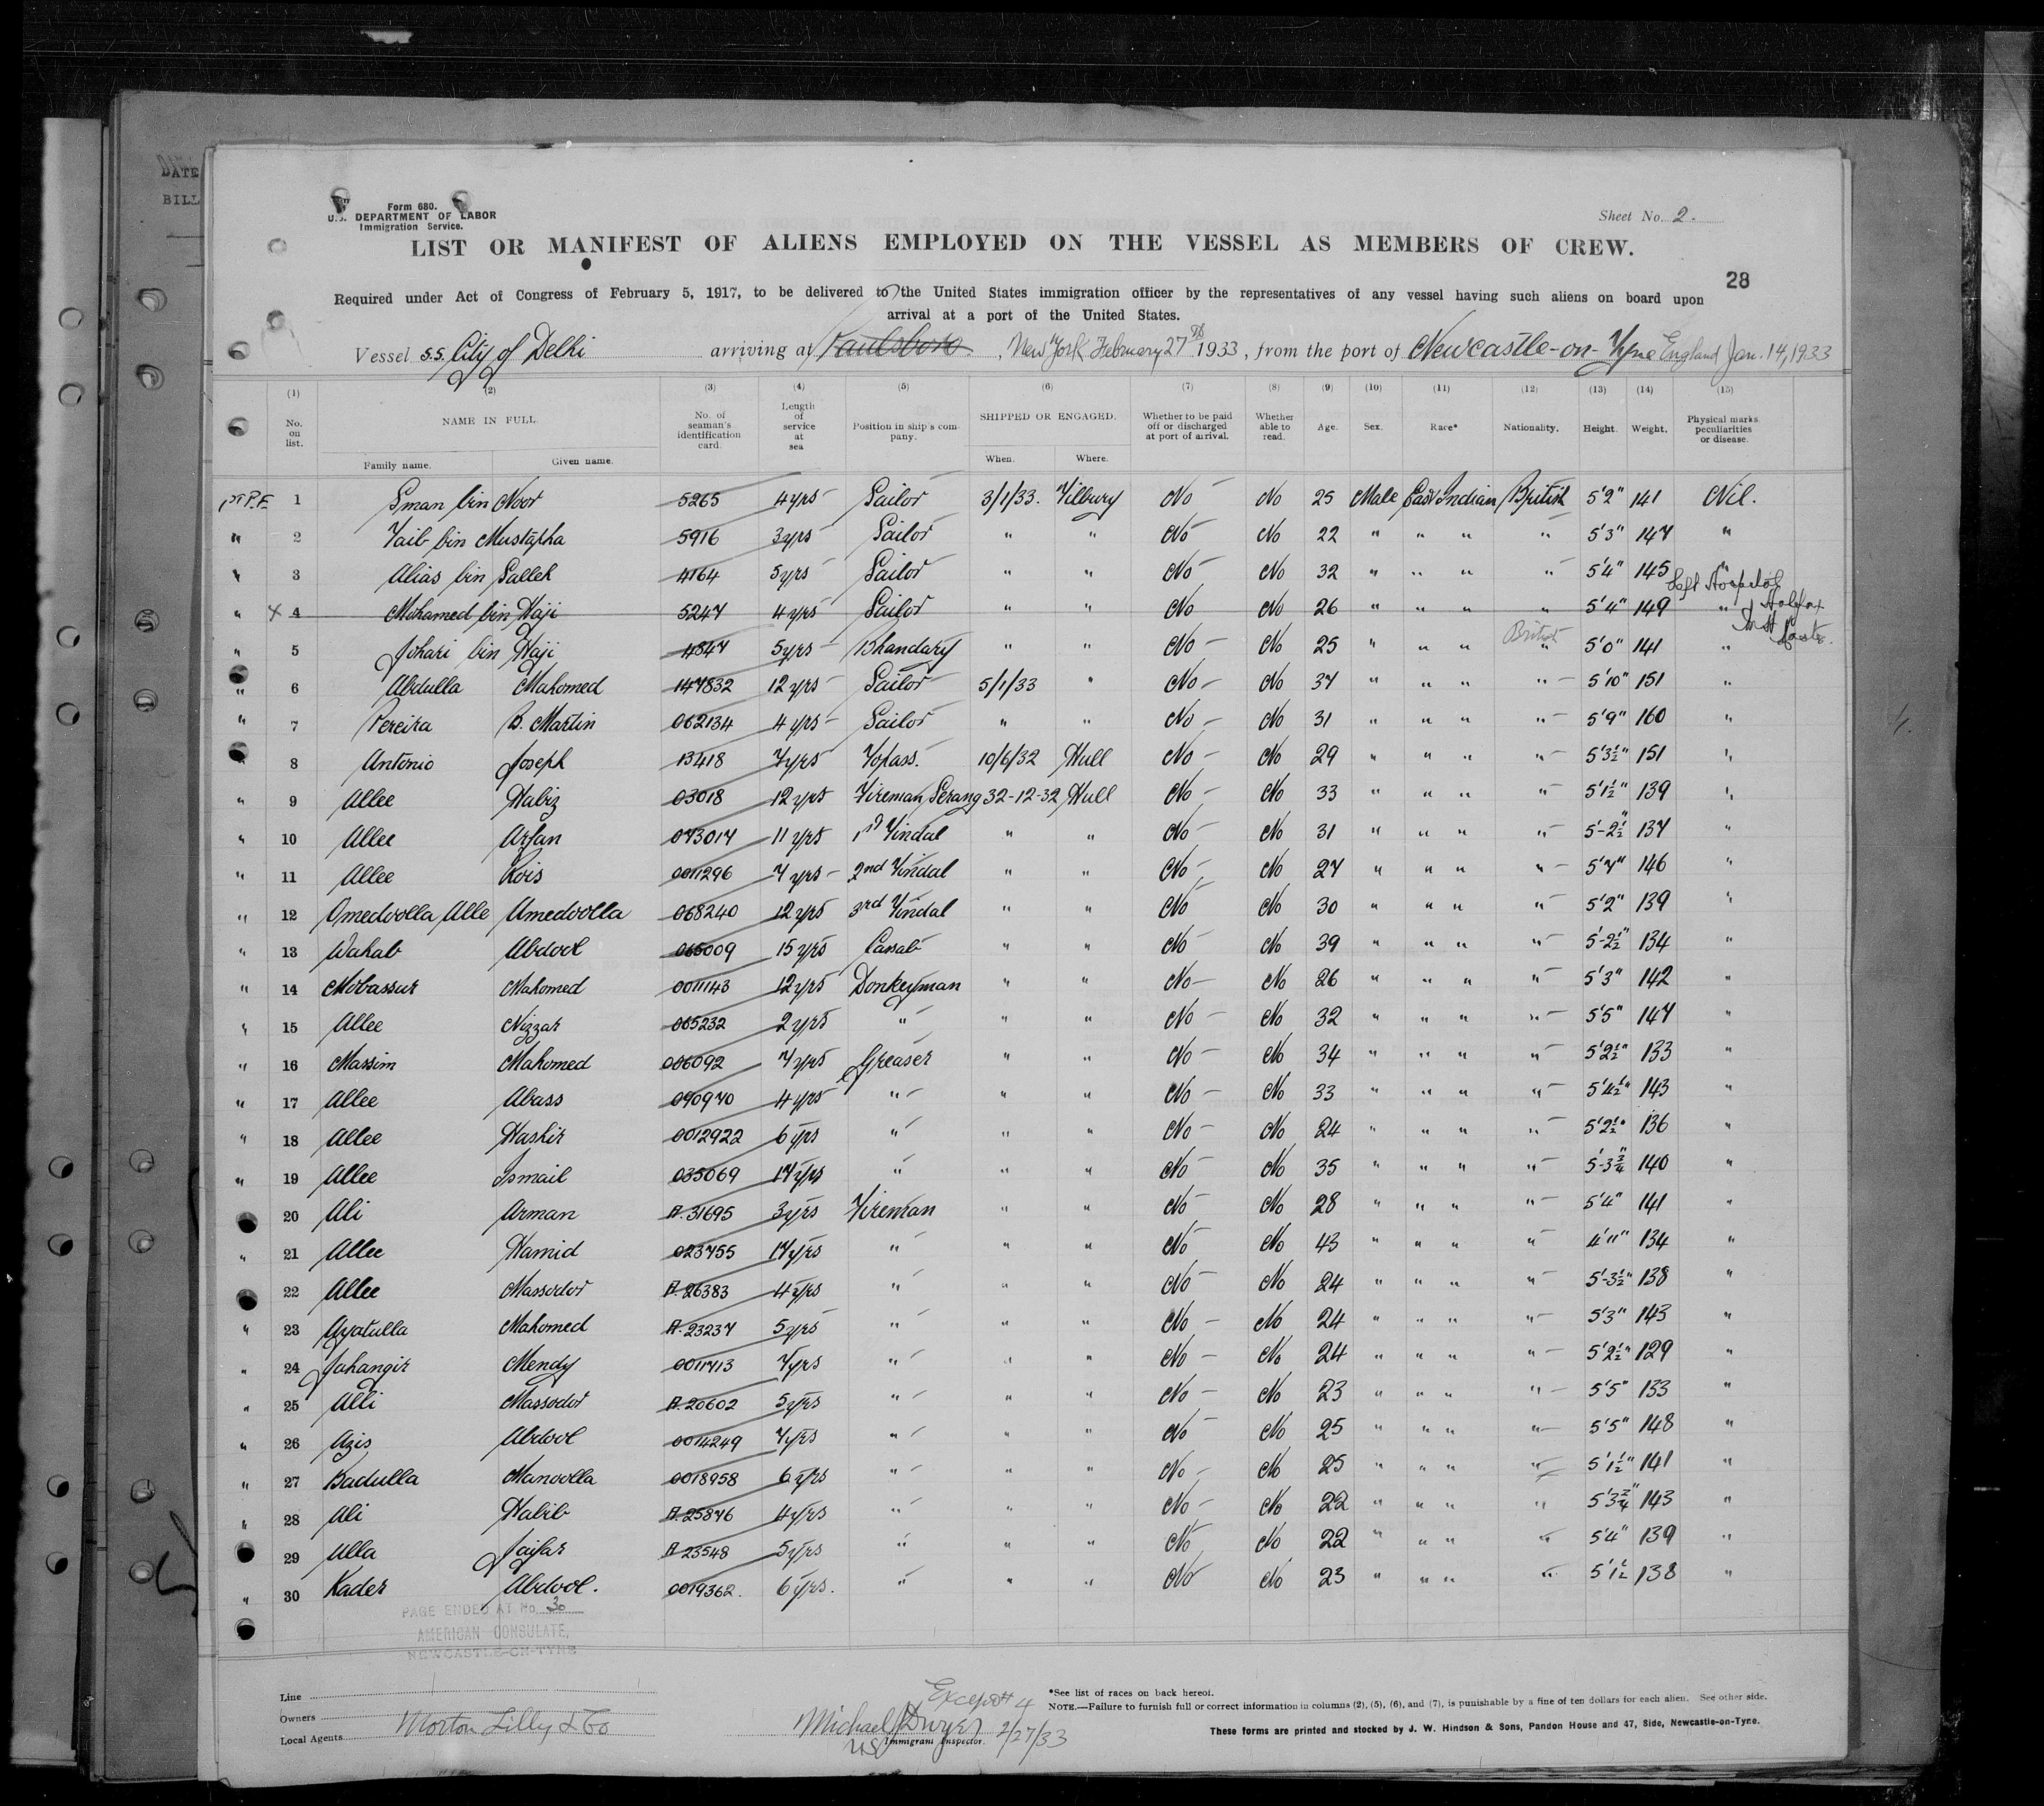 DATE
BILL
Form 680.
U.S. DEPARTMENT OF LABOR
Immigration Service.
Sheet No. 2.
LIST OR MANIFEST OF ALIENS EMPLOYED ON THE VESSEL AS MEMBERS OF CREW.
28
Required under Act of Congress of February 5, 1917, to be delivered to the United States immigration officer by the representatives of any vessel having such aliens on board upon
arrival at a port of the United States.
Vessel s.s. City of Delhi arriving at Paulsboro, New York February 27th 1933, from the port of Newcastle-on-Tyne England Jan. 14, 1933
(1) (2) (3) (4) (5) (6) (7) (8) (9) (10) (11) (12) (13) (14) (15)
No. on list. NAME IN FULL. No. of seaman's identification card. Length of service at sea Position in ship's company. SHIPPED OR ENGAGED. Whether to be paid off or discharged at port of arrival. Whether able to read. Age. Sex. Race* Nationality. Height. Weight. Physical marks, peculiarities or disease.
Family name. Given name. When. Where.
1 Sman bin Noor 5265 4 yrs Sailor 3/1/33. Tilbury No No 25 Male East Indian British 5'2" 141 Nil.
" 2 Taib bin Mustapha 5916 3 yrs Sailor " " No No 22 " " " " 5'3" 147 "
" 3 Alias bin Salleh 4164 5 yrs Sailor " " No No 32 " " " " 5'4" 145 "
Left Hospital Halifax
" X 4 Mohamed bin Haji 5247 4 yrs Sailor " " No No 26 " " " " 5'4" 149 "
" 5 Johari bin Haji 4847 5 yrs Bhandary " " No No 25 " " " British " 5'0" 141 "
" 6 Abdulla Mahomed 147832 12 yrs Sailor 5/1/33 " No No 37 " " " " 5'10" 151 "
" 7 Pereira B. Martin 062134 4 yrs Sailor " " No No 31 " " " " 5'9" 160 "
8 Antonio Joseph 13418 7 yrs Topass. 10/6/32 Hull No No 29 " " " " 5'3½" 151 "
" 9 Allee Habiz 03018 12 yrs Fireman Serang 32-12-32 Hull No No 33 " " " " 5'1½" 139 "
" 10 Allee Arfan 073017 11 yrs 1st Tindal " " No No 31 " " " " 5'-2½" 137 "
" 11 Allee Rois 0011296 7 yrs 2nd Tindal " " No No 27 " " " " 5'7" 146 "
" 12 Omedoolla Alle Amedoolla 068240 12 yrs 3rd Tindal " " No No 30 " " " " 5'2" 139 "
" 13 Wahab Abdool 065009 15 yrs Cassab " " No No 39 " " " " 5'-2½" 134 "
" 14 Mobassur Mahomed 0011143 12 yrs Donkeyman " " No No 26 " " " " 5'3" 142 "
" 15 Allee Nizzar 065232 2 yrs " " " No No 32 " " " " 5'5" 147 "
" 16 Massim Mahomed 006092 7 yrs Greaser " " No No 34 " " " " 5'2½" 133 "
" 17 Allee Abass 090970 4 yrs " " " No No 33 " " " " 5'4½" 143 "
" 18 Allee Hashir 0012922 6 yrs " " " No No 24 " " " " 5'2½" 136 "
" 19 Allee Ismail 035069 17 yrs " " " No No 35 " " " " 5'-3¾" 140 "
20 Ali Arman A. 31695 3 yrs Fireman " " No No 28 " " " " 5'4" 141 "
" 21 Allee Hamid 023755 17 yrs " " " No No 43 " " " " 4'11" 134 "
22 Allee Massodor A. 26383 4 yrs " " " No No 24 " " " " 5'-3½" 138 "
" 23 Ayatulla Mahomed A. 23237 5 yrs " " " No No 24 " " " " 5'3" 143 "
" 24 Jahangir Mendy 0011713 7 yrs " " " No No 24 " " " " 5'2½" 129 "
" 25 Alli Massodor A. 20602 5 yrs " " " No No 23 " " " " 5'5" 133 "
" 26 Azis Abdool 0014249 7 yrs " " " No No 25 " " " " 5'5" 148 "
" 27 Badulla Manoolla 0018958 6 yrs " " " No No 25 " " " " 5'1½" 141 "
" 28 Ali Habib A. 25876 4 yrs " " " No No 22 " " " " 5'3¾" 143 "
29 Ulla Jaifar A 23548 5 yrs " " " No No 22 " " " " 5'4" 139 "
" 30 Kader Abdool. 0019362. 6 yrs. " " " No No 23 " " " " 5'1½ 138 "
PAGE ENDED AT No. 30
AMERICAN CONSULATE,
NEWCASTLE-ON-TYNE
Line
Owners
Local Agents Morton Lilly & Co
Except 4
Michael J Dwyer 2/27/33
US Immigrant Inspector.
*See list of races on back hereof.
NOTE.—Failure to furnish full or correct information in columns (2), (5), (6), and (7), is punishable by a fine of ten dollars for each alien. See other side.
These forms are printed and stocked by J. W. Hindson & Sons, Pandon House and 47, Side, Newcastle-on-Tyne.